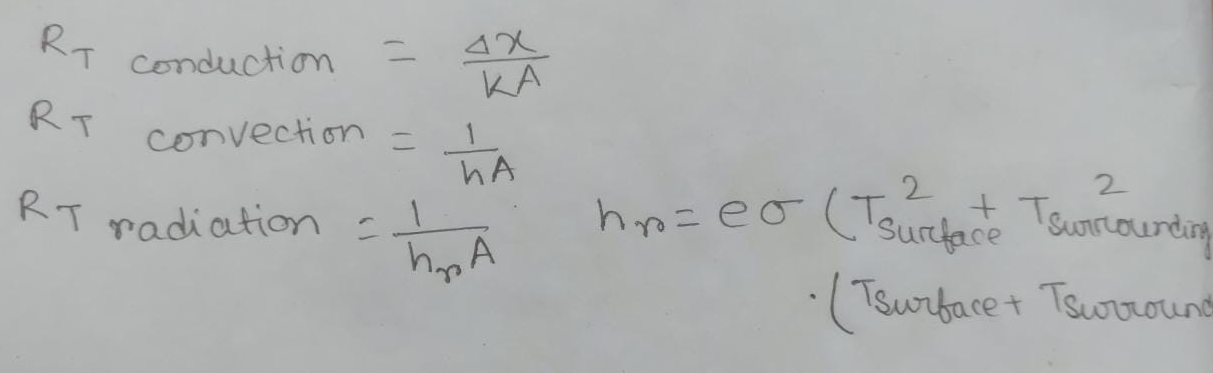 R_T conduction = Δx / KA
R_T convection = 1 / hA
R_T radiation = 1 / h_r A    h_r = eσ (T²surface + T²surrounding
·(Tsurface + Tsurround